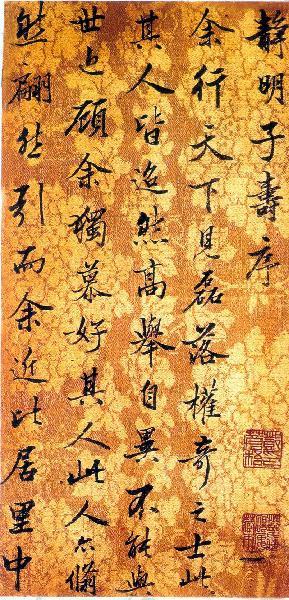 靜明子壽序
余行天下見磊落權奇之士此
其人皆然高舉自異不能與
世近顧余獨慕好其人此人亦翛
然翩然引而余近比居里中